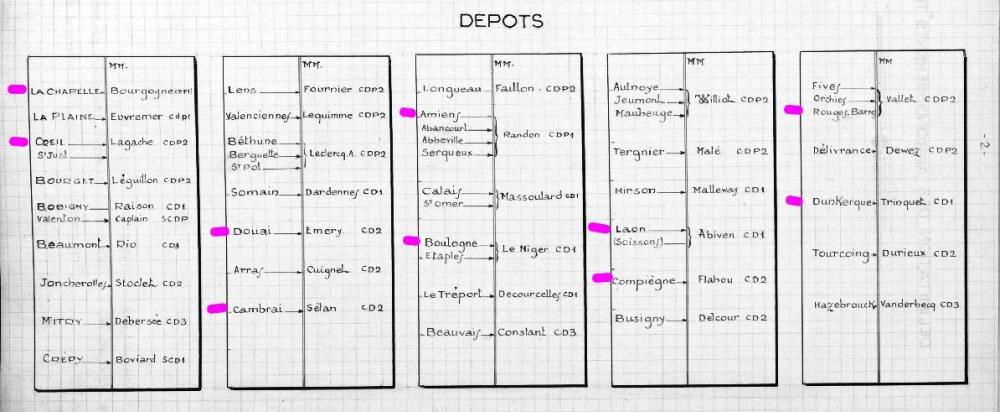 DEPOTS
MM.
LA CHAPELLE Bourgogne
LA PLAINE Evremer CDP1
CREIL Lagache CDP2
St Just
BOURGET Léguillon CDP2
BOBIGNY Raison CD1
Valenton Caplain SCDP
Beaumont Rio CD3
Joncherolles Stoclet CD2
MITRY Debersée CD3
CREPY Boviard SCD1
MM.
Lens Fournier CDP2
Valenciennes Lequimme CDP2
Béthune
Berguette Leclercq.A. CDP2
St Pol
Somain Dardennes CD1
Douai Emery CD2
Arras Cuignet CD2
Cambrai Sélan CD2
MM.
Longueau Faillon . CDP2
Amiens
Abancourt Randon CDP1
Abbeville
Serqueux
Calais Massoulard CD1
St Omer
Boulogne Le Niger CD1
Etaples
Le Tréport Decourcelles CD1
Beauvais Constant CD3
MM
Aulnoye
Jeumont Williot CDP2
Maubeuge
Tergnier Malé CDP2
Hirson Malleway CD1
Laon Abiven CD1
(Soissons)
Compiègne Flahou CD2
Busigny Delcour CD2
MM
Fives
Orchies Vallet CDP2
Rouges.Barres
Délivrance Dewez CDP2
Dunkerque Trinquet CD1
Tourcoing Durieux CD2
Hazebrouck Vanderbecq CD3
-2-